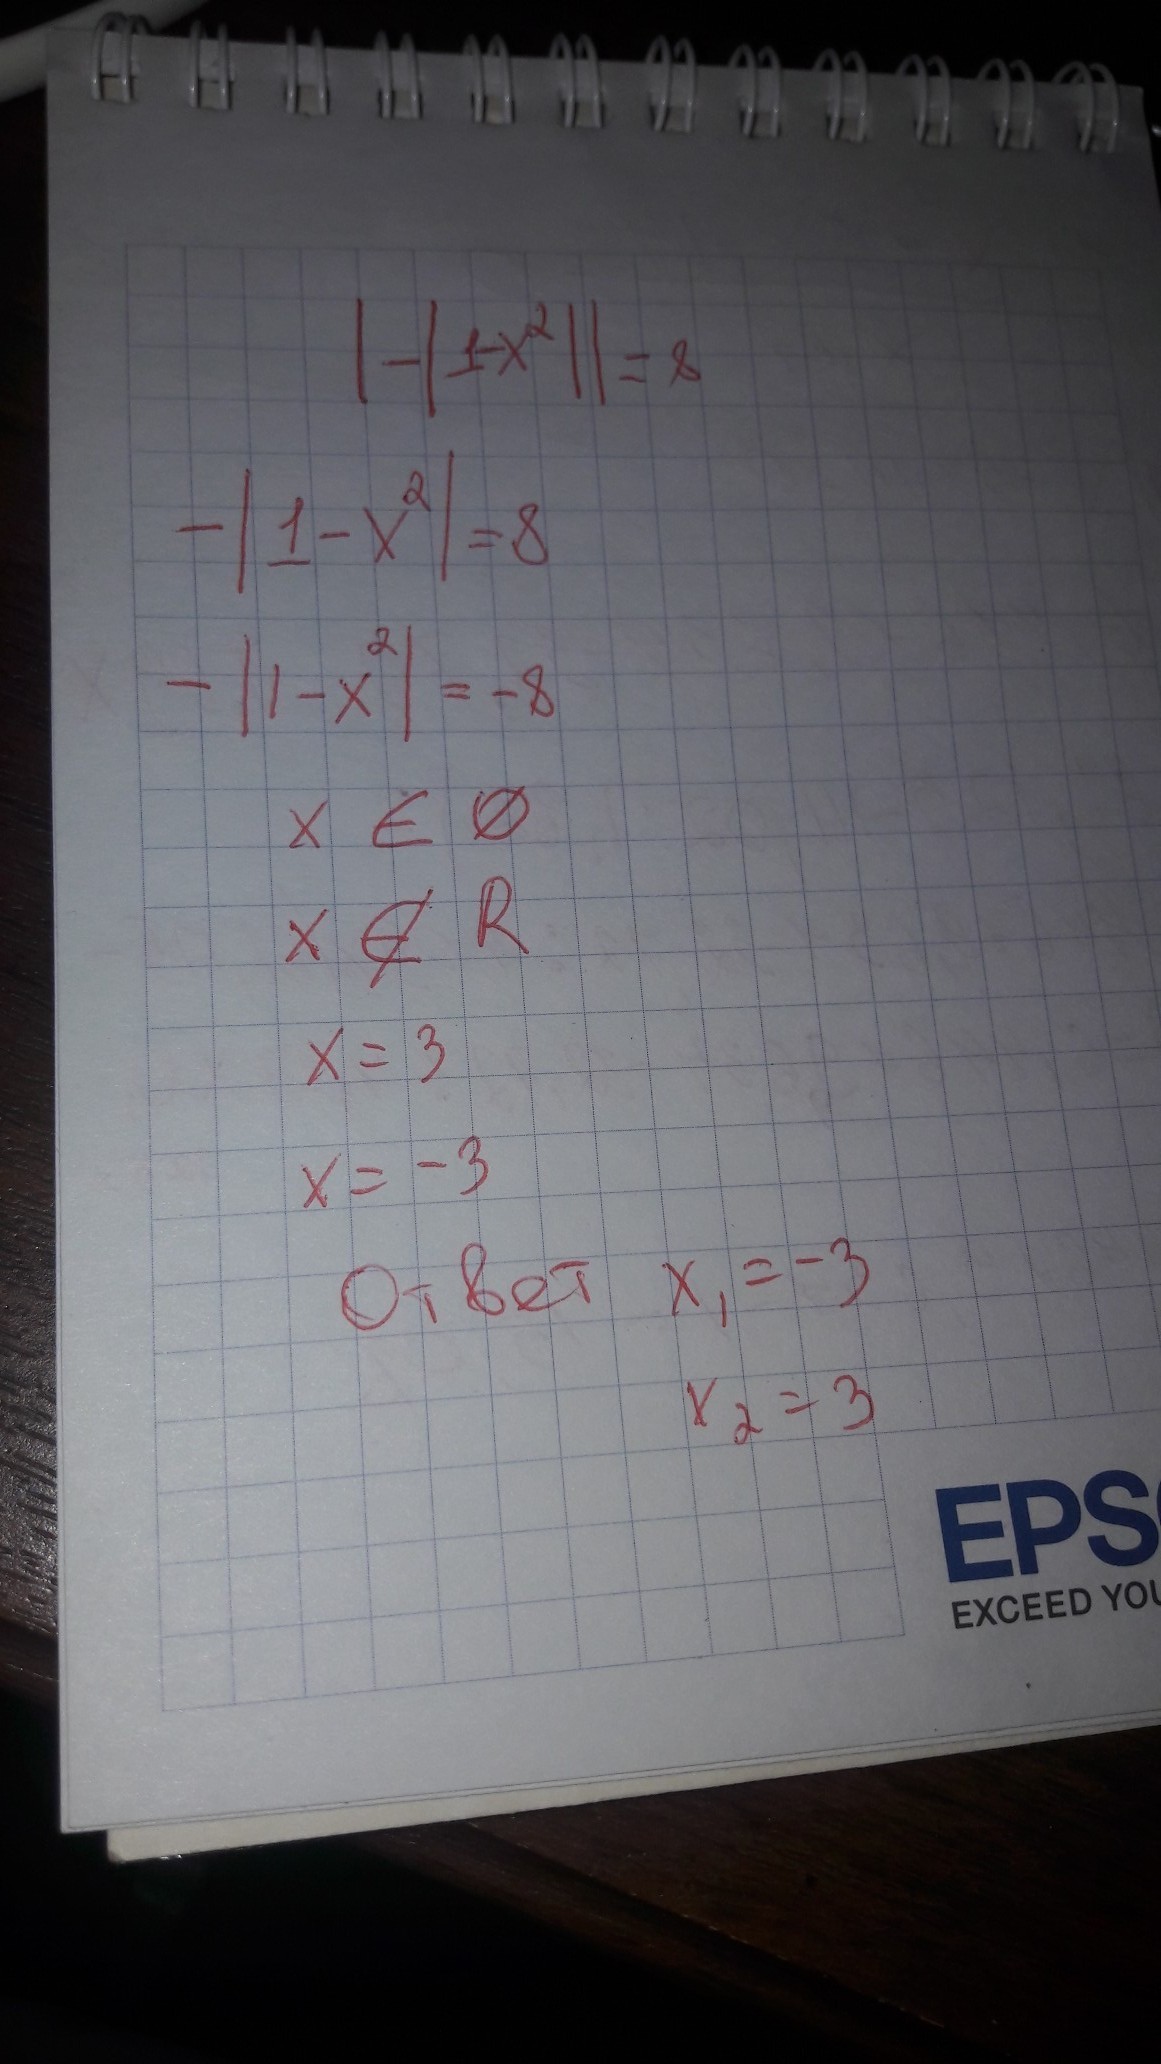 |-|1-x²||=8
-|1-x²|=8
-|1-x²|=-8
x ∈ Ø
x ∉ R
x=3
x=-3
Ответ x₁=-3
x₂=3
EPS
EXCEED YOU